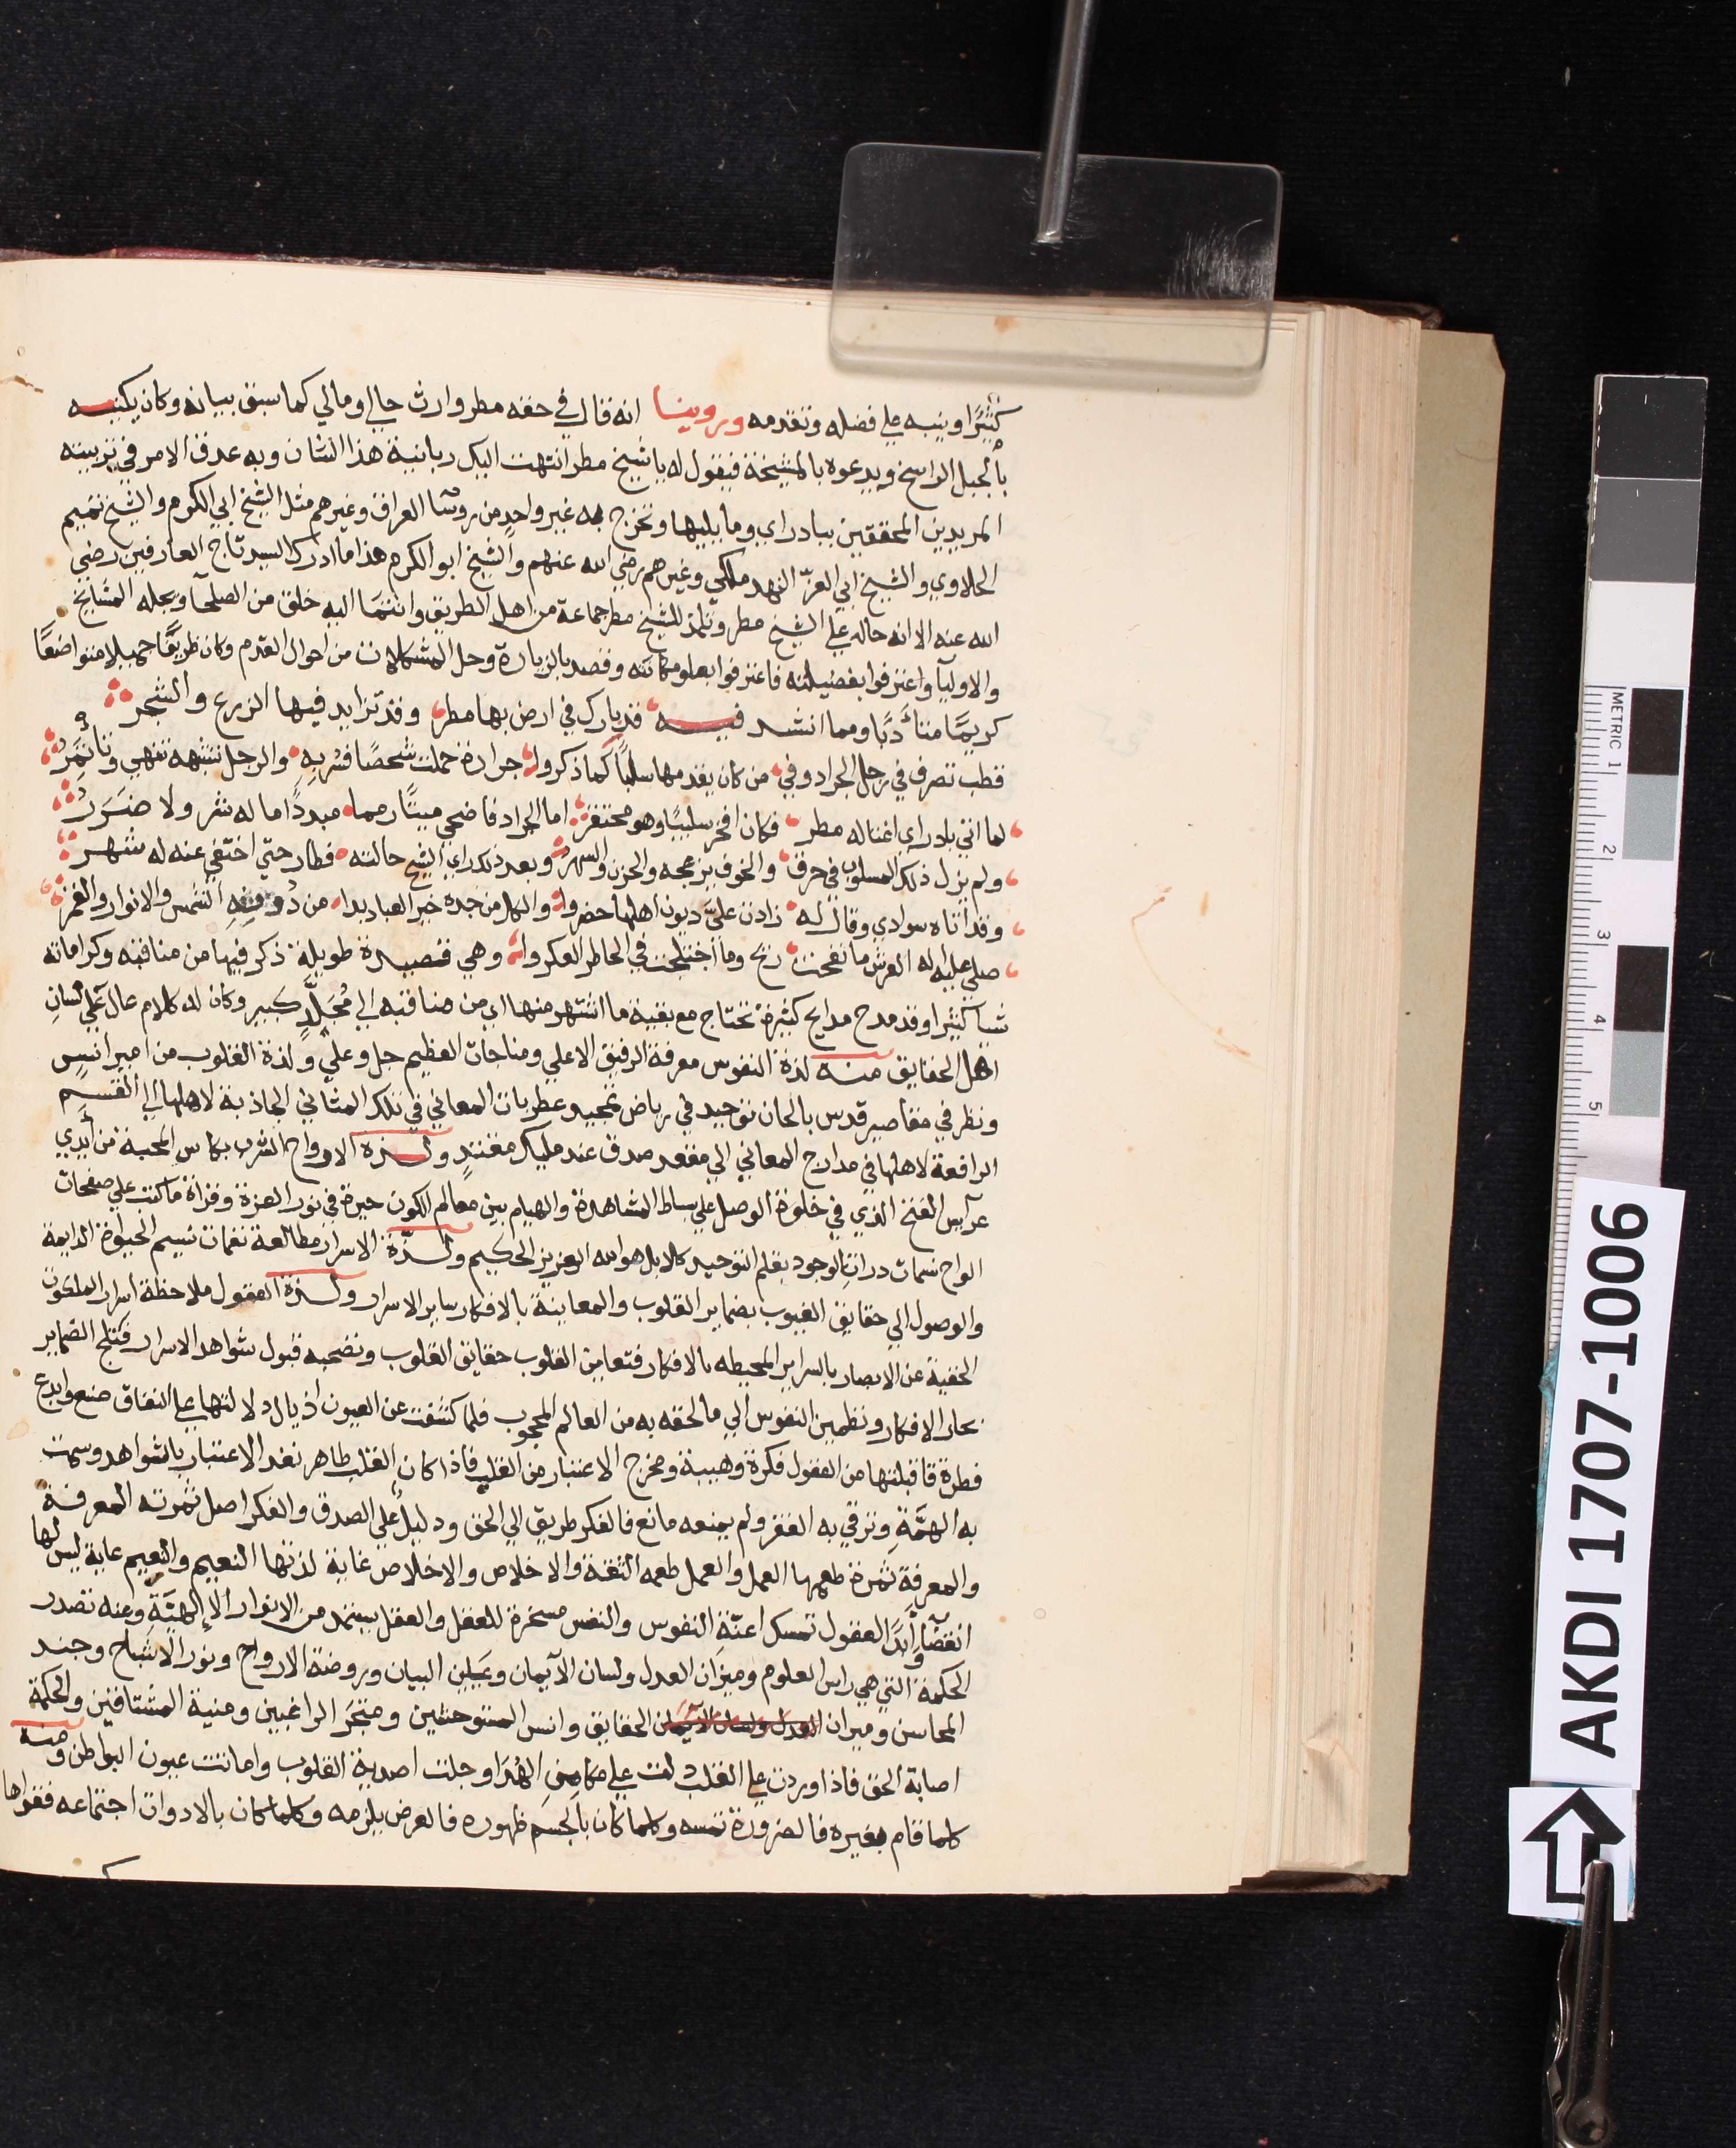 كثيرًا وينبه علي فضله وتقدمه وروينا انه قال في حقه مطر وارث حالي ومالي كما سبق بيانه وكان يكنيه
بالجبل الراسخ ويدعوه بالمشيخة فيقول له يا شيخ مطر انتهت اليك ربانية هذا الشان وبه عدق الامر في تربيته
المريدين المحققين ببادراي وما يليها وتخرج به غير واحد من روسا العراق وغيرهم مثل الشيخ ابي الكرم والشيخ تميم
الحلاوي والشيخ ابي العز النهرملكي وغيرهم رضي الله عنهم والشيخ ابو الكرم هذا ما ادرك السيد تاج العارفين رضي
الله عنه الا انه حاله علي الشيخ مطر وتلمذ للشيخ مطر جماعة من اهل الطريق وانتما اليه خلق من الصلحآ وبجله المشايخ
والاوليآ واعترفوا بفضيلته فاعترفوا بعلو مكانته وقصد بالزيارة وحل المشكلات من احوال القوم وكان ظريفًا جميلا متواضعًا
كريمًا متأدبًا ومما انشد فيه قد بارك في ارض بها مطر وقد تزايد فيها الزرع والشجر
قطب تصرف في رجل الجراد وفي من كان يقدمها سلبًا كما ذكروا جرادة حملت شخصًا فسر به والرجل تتبهه تنهي وتاتمر
لما اتي بلدراي اغتاله مطر فكان افخر سليبًا وهو محتقر اما الجراد فاضحي ميتًا رمما مبددًا ما له شر ولا ضرر
ولم يزل ذلك المسلوب في حرق والخوف يزعجه والحزن والسهر وبعد ذلك راي الشيخ حالته فطار حتي اختفي عنه له شهر
وقد اتاه سوادي وقال له زادت علي ديون اهلها حضروا والكل من جده خير العباد بدا من دونه الشمس والانوار والقمر
صلي عليه اله العرش ما نفحت ريح وما اختلجت في الخاطر الفكر وهي قصيدة طويلة ذكر فيها من مناقبه وكراماته
شيا كثيرا وقد مدح مدايح كثيرة تحتاج مع بقية ما اشتهر منها اي من مناقبه الي مجلد كبير وكان له كلام عال علي لسان
اهل الحقايق منه لذة النفوس معرفة الرفيق الاعلي ومناجات العظيم جل وعلي ولذة القلوب من امير انيس
ونظر في مقاصير قدس بالحان توحيد في رياض تمجيد عطربات المعاني في تلك المثاني الجاذبة لاهلها الي القسم
الرافعة لاهلها في مدارج المعاني الي مقعد صدق عند مليك مقتدر ولذة الارواح الشرب بكاس المحبة من أيدي
عرآيس الفتح الذي في خلوة الوصل علي بساط المشاهدة والهيام بين معالم الكون حيرة في نور العزة وقرأة ما كتب علي صفحات
الواح نسمات درات الوجود بقلم التوحيد كلا بل هو الله العزيز الحكيم ولذة الاسرار مطالعة نغمات نسيم الحيوة الدايمة
والوصول الي حقايق الغيوب بضماير القلوب والمعاينة بالافكار ساير الاسرار ولذة العقول ملاحظة اسرار الملكوت
الخفية عن الابصار بالسراير المحيطه بالافكار فتعاين القلوب حقايق القلوب وتصحبه قبول شواهد الاسرار فتلج الضماير
بحار الافكار وتطمين النفوس الي ما لحقه به من العالم المحجوب فلما كشفت عن العيون اذيال دلالتها علي اتفاق صنع وابدع
فطرة قابلتها من العقول فكرة وهيبة ومخرج الاعتبار من القلب فاذا كان القلب طاهر نفد الاعتبار بالشواهد وسمت
به الهمة وترقي به الفقر ولم يمنعه مانع فالفكر طريق الي الحق ودليل علي الصدق والفكر اصل ثمرته المعرفة
والمعرفة ثمرة طعمها العمل والعمل طعمه الثقة والاخلاص والاخلاص غاية لذتها النعيم والنعيم غاية ليس لها
انقضا أبدًا والعقول تمسك اعنة النفوس والنفس مسخرة للعقل والعقل يستمد من الانوار الإلهية ومنه تصدر
الحكمة التي هي راس العلوم وميزان العدل ولسان الآيمان وعين البيان وروضة الارواح ونور الاشباح وجند
المحاسن وميزان العدل ولسان الآيمان الحقايق وانس المستوحشين ومتجر الراغبين ومنية المشتاقين والحكمة
اصابة الحق فاذا وردت علي القلب دلت علي مكامن الهدا وجلت اصدية القلوب واماتت عيون البواطن ومنه
كلما قام بغيره فالضرورة تمسه وكلما كان بالجسم ظهوره فالعرض يلزمه وكلما كان بالادوات اجتماعه فقواها